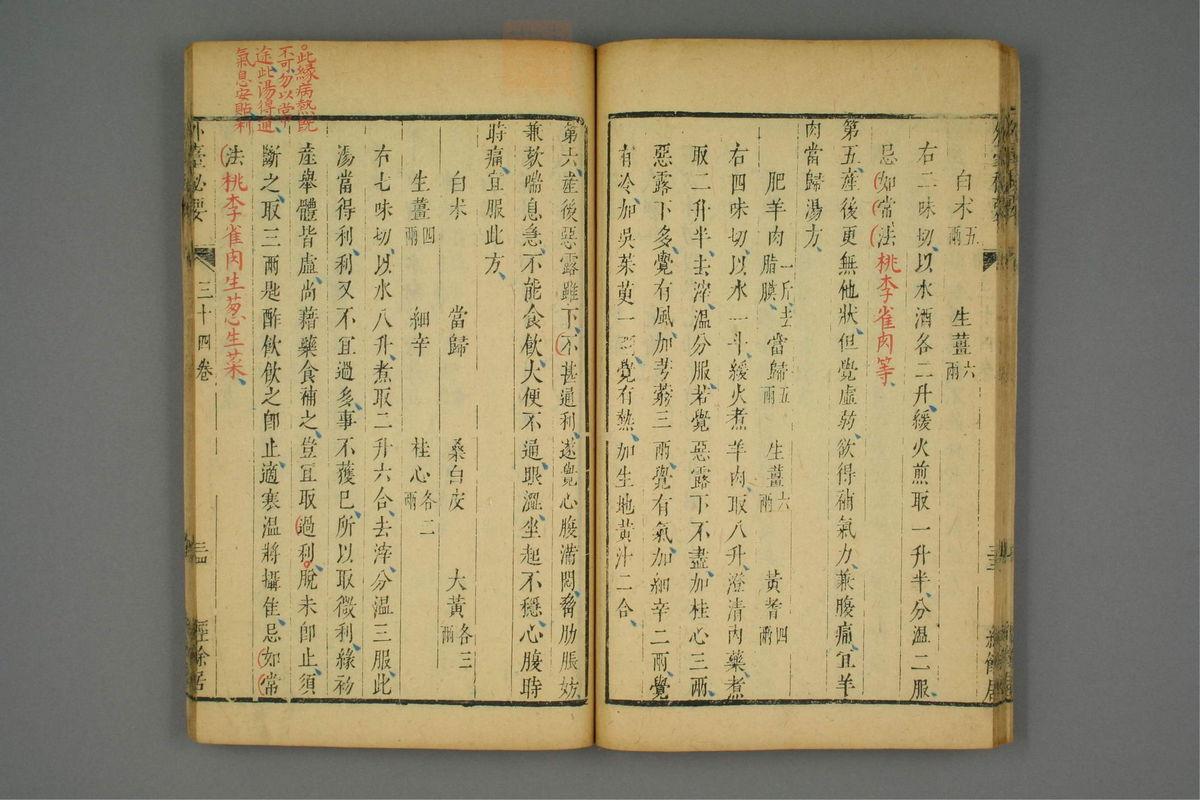 白朮五兩　生薑六兩
右二味切、以水酒各二升、緩火煎取一升半、分溫二服、
忌如常法桃李雀肉等、
第五、產後更無他狀、但覺虛弱、欲得補氣力、兼腹痛、宜羊
肉當歸湯方、
肥羊肉一斤去脂膜、當歸五兩　生薑六兩　黃耆四兩
右四味切、以水一斗、緩火煮羊肉、取八升、澄清內藥、煮
取二升半、去滓、溫分服、若覺惡露下不盡、加桂心三兩、
惡露下多、覺有風、加芎藭三兩、覺有氣、加細辛二兩、覺
有冷、加吳茱萸一兩、覺有熱、加生地黃汁二合、
此緣病熱既
不可勿以常
途此湯得通
氣息安貼利
第六、產後惡露雖下、不甚通利、遂覺心腹滿悶、脅肋脹妨、
兼欬喘息急、不能食飲、大便不通、眼澀、坐起不穩、心腹時
時痛、宜服此方、
白朮　當歸　桑白皮　大黃各三兩
生薑四兩　細辛　桂心各二兩
右七味切、以水八升、煮取二升六合、去滓、分溫三服、此
湯當得利、利又不宜過多、事不獲已、所以取微利、緣初
產舉體皆虛、尚藉藥食補之、豈宜取過利、脫未即止、須
斷之、取三兩匙酢飲飲之即止、適寒溫將攝佳、忌如常
法桃李雀肉生葱生菜、
外臺秘要　三十四卷　經餘居